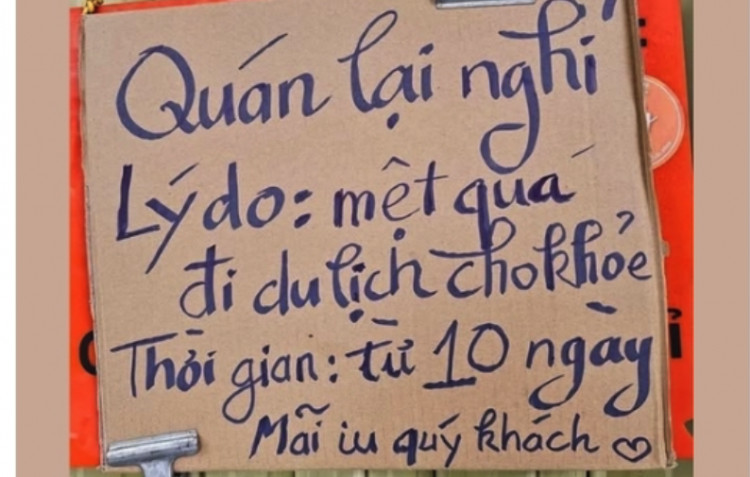 Quán lại nghỉ
Lý do: mệt quá
đi du lịch cho khỏe
Thời gian: từ 10 ngày
Mãi iu quý khách ♡